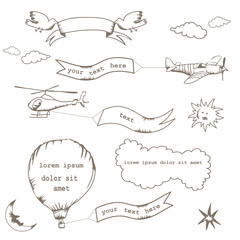 your text here
text
lorem ipsum
dolor sit
amet
lorem ipsum dolor sit amet
your text here